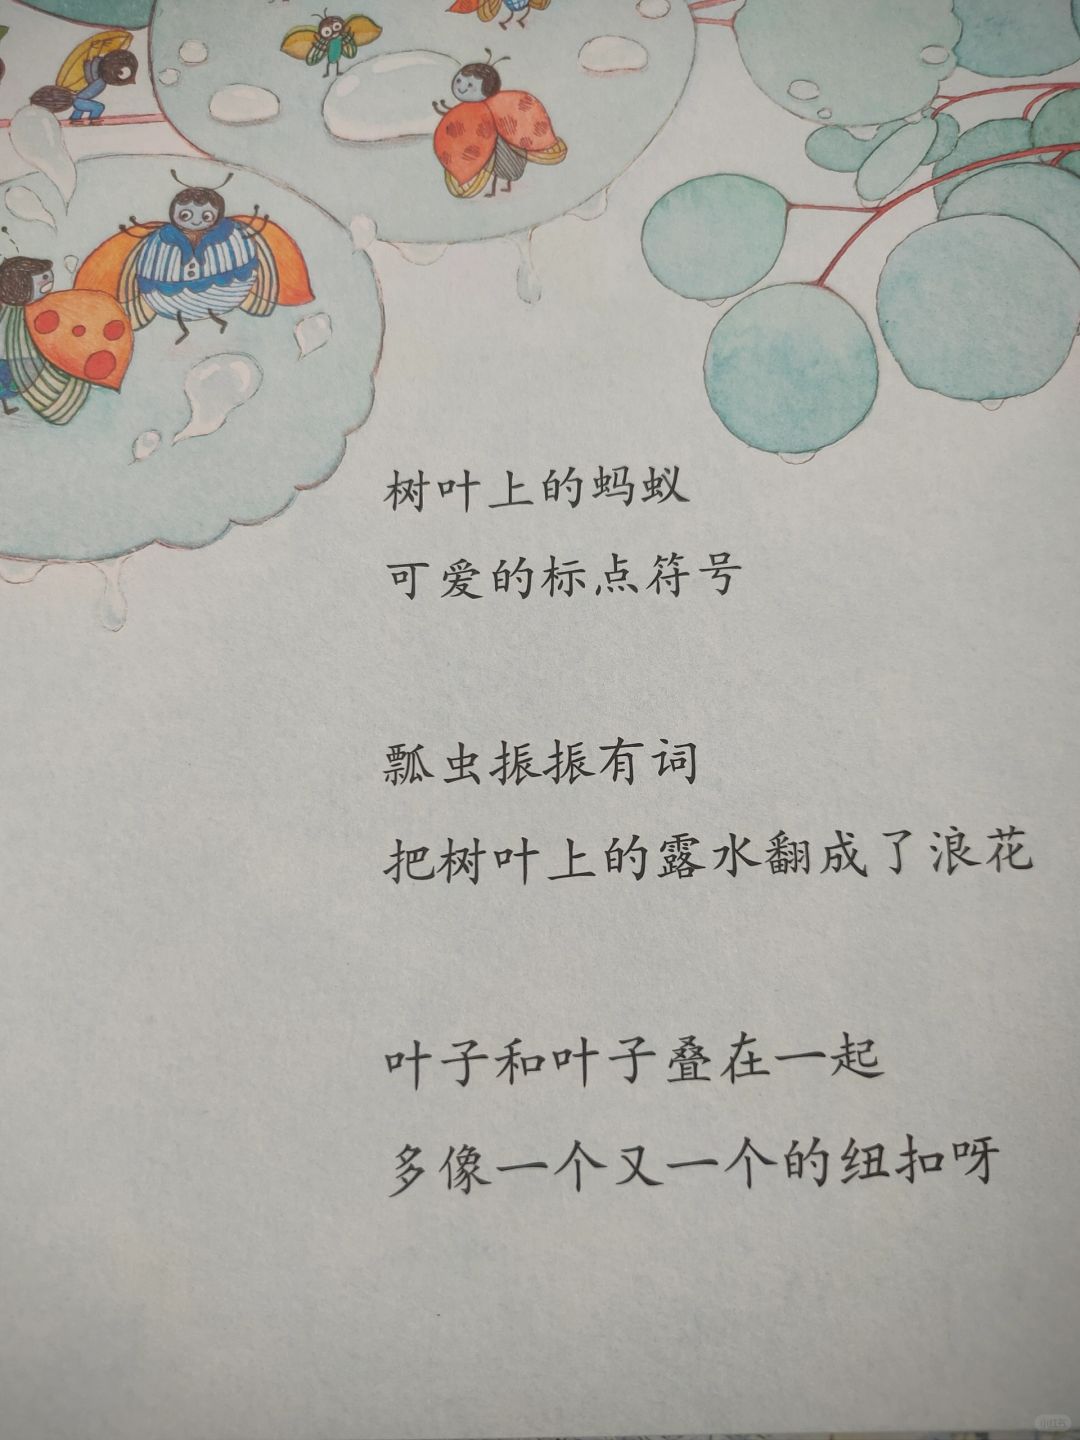 树叶上的蚂蚁
可爱的标点符号
瓢虫振振有词
把树叶上的露水翻成了浪花
叶子和叶子叠在一起
多像一个又一个的纽扣呀
小红书